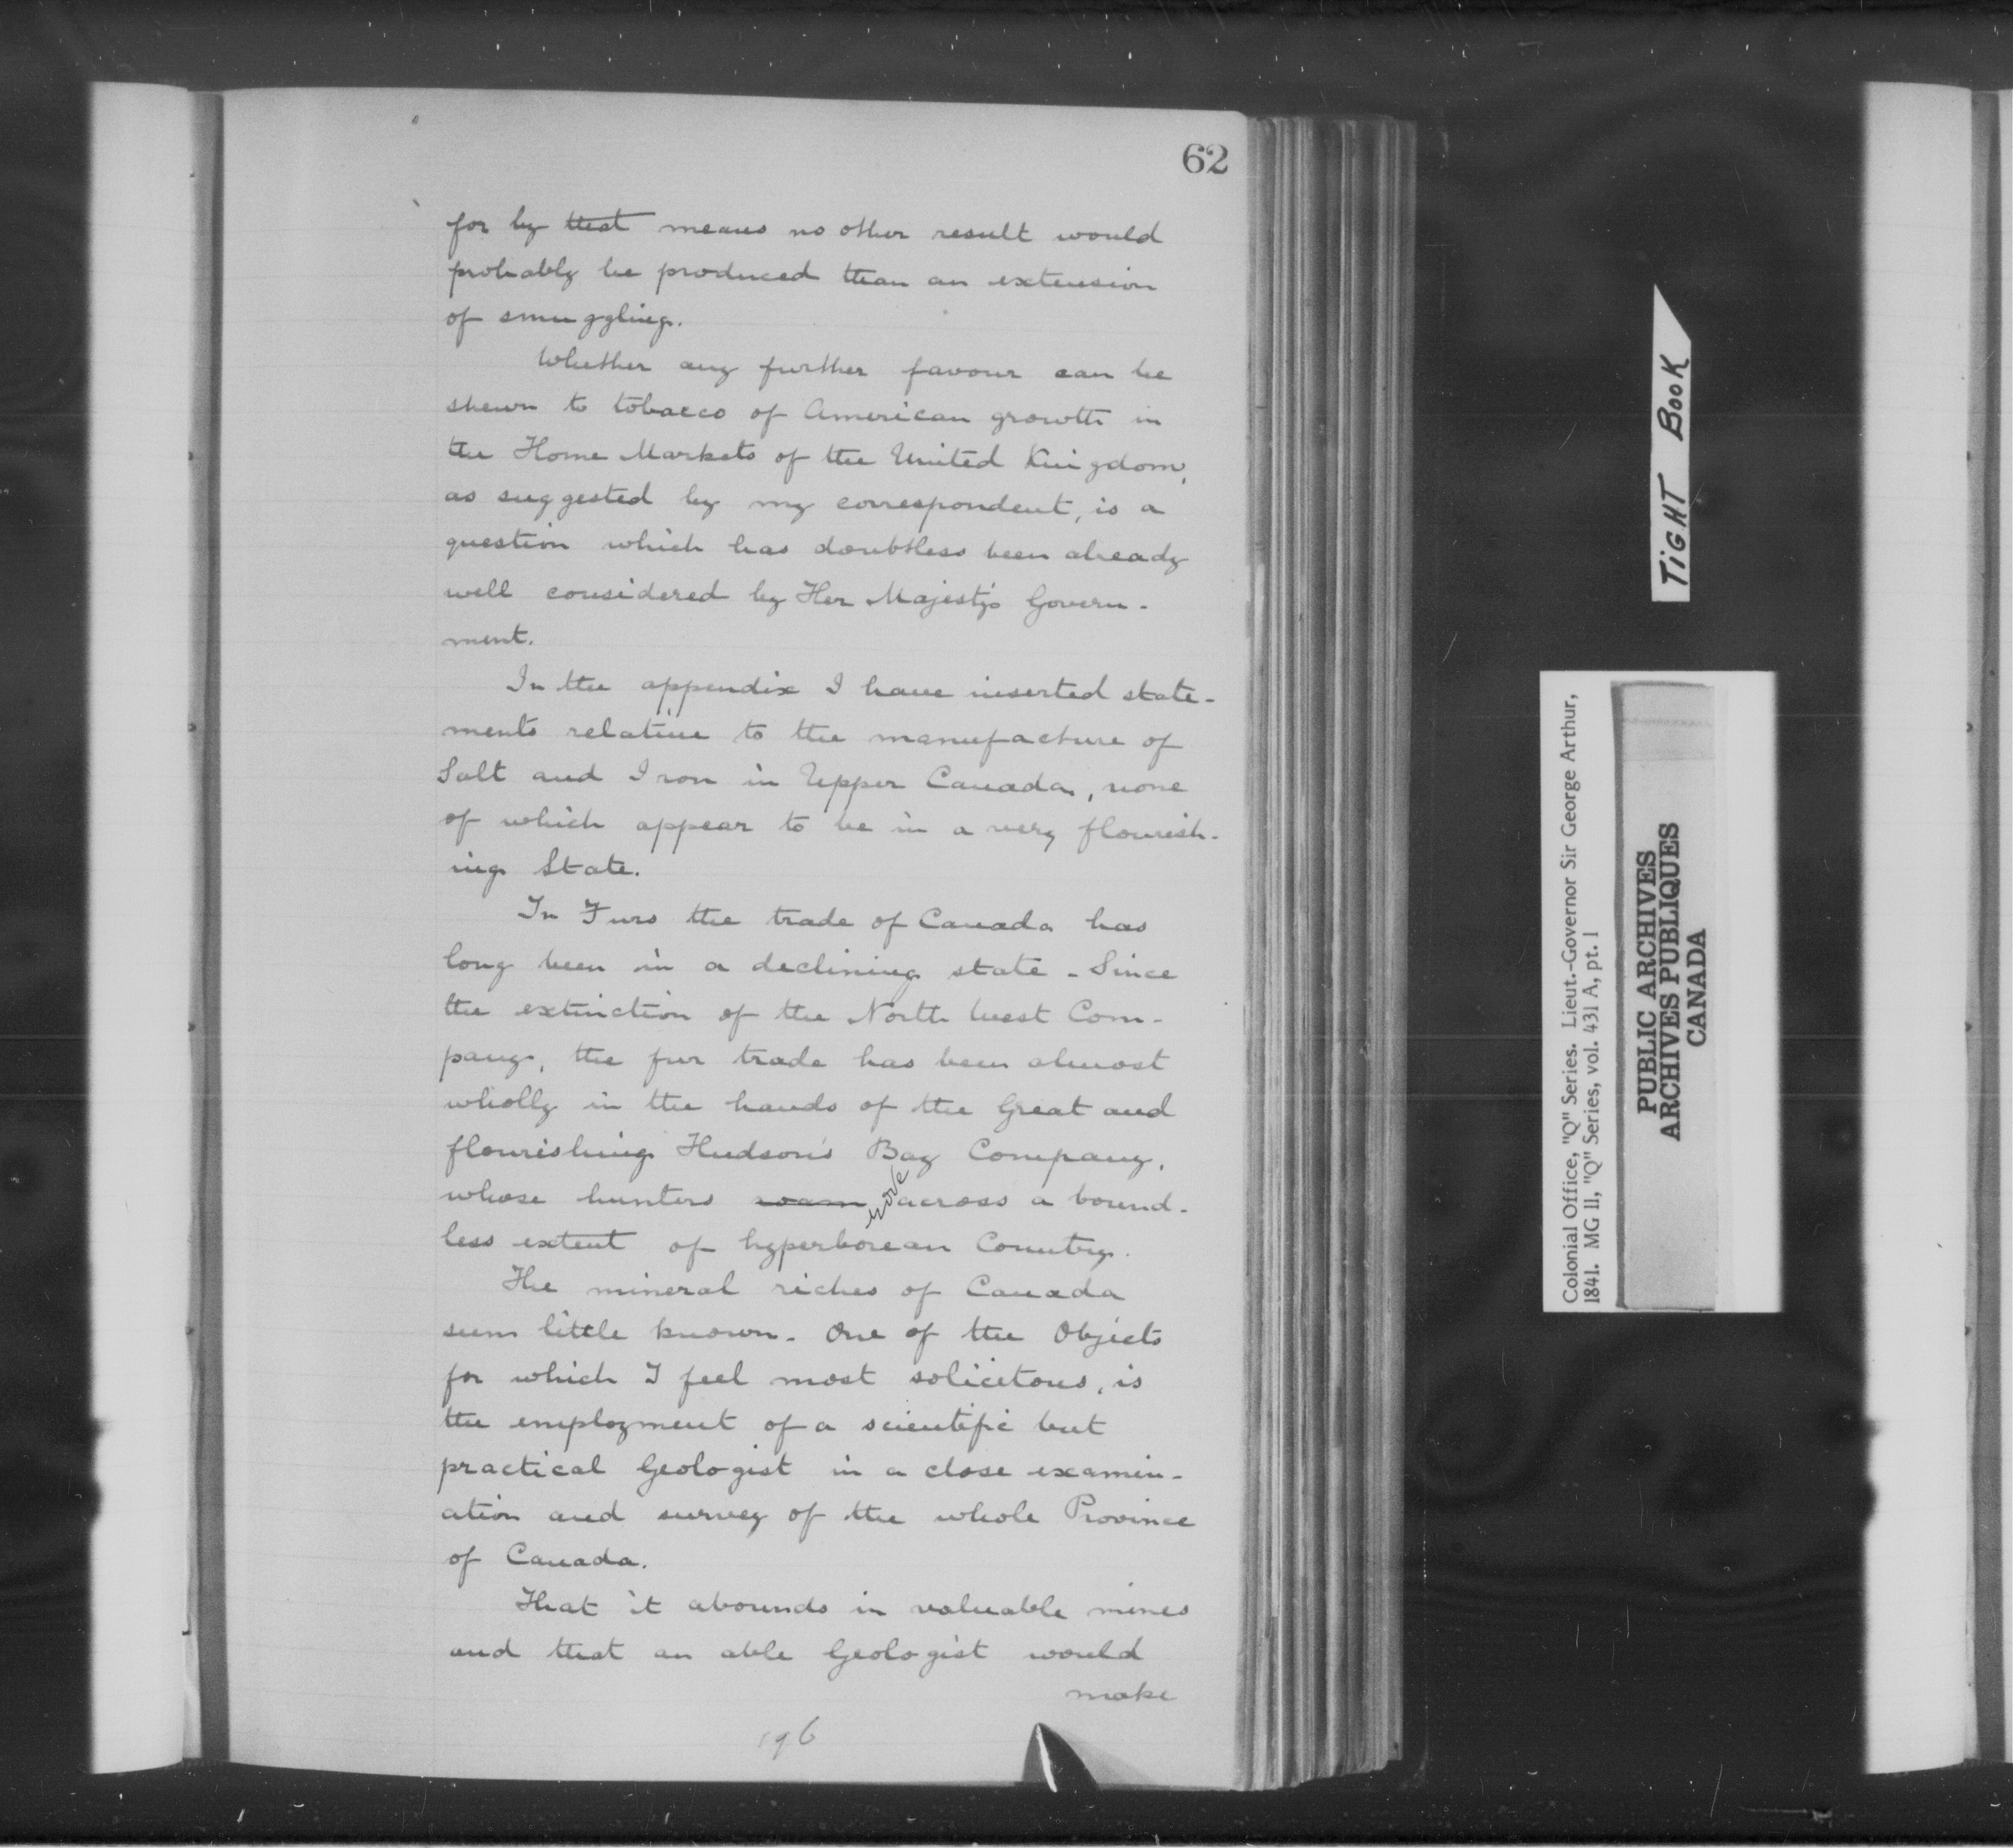 62
for by that means no other result would
probably be produced than an extension
of smuggling.
Whether any further favour can be
shewn to tobacco of American growth in
the Home Markets of the United Kingdom,
as suggested by my correspondent, is a
question which has doubtless been already
well considered by Her Majesty's Govern-
ment.
In the appendix I have inserted state-
ments relative to the manufacture of
Salt and Iron in Upper Canada, none
of which appear to be in a very flourish-
ing State.
In Furs the trade of Canada has
long been in a declining state - Since
the extinction of the North West Com-
pany, the fur trade has been almost
wholly in the hands of the Great and
flourishing Hudson's Bay Company,
whose hunters roam rove across a bound-
less extent of hyperborean Country.
The mineral riches of Canada
seem little known. One of the Objects
for which I feel most solicitous, is
the employment of a scientific but
practical Geologist in a close examin-
ation and survey of the whole Province
of Canada.
That it abounds in valuable mines
and that an able Geologist would
make
196
TIGHT BOOK
Colonial Office, "Q" Series. Lieut.-Governor Sir George Arthur,
1841. MG 11, "Q" Series, vol. 431 A, pt. 1
PUBLIC ARCHIVES
ARCHIVES PUBLIQUES
CANADA